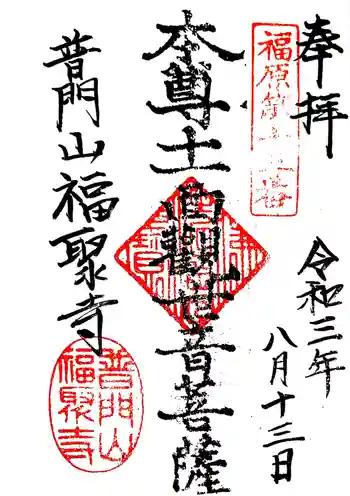 奉拝
福原第十五番
令和三年
八月十三日
本尊十一面觀世音菩薩
普門山福聚寺
普門山
福聚寺